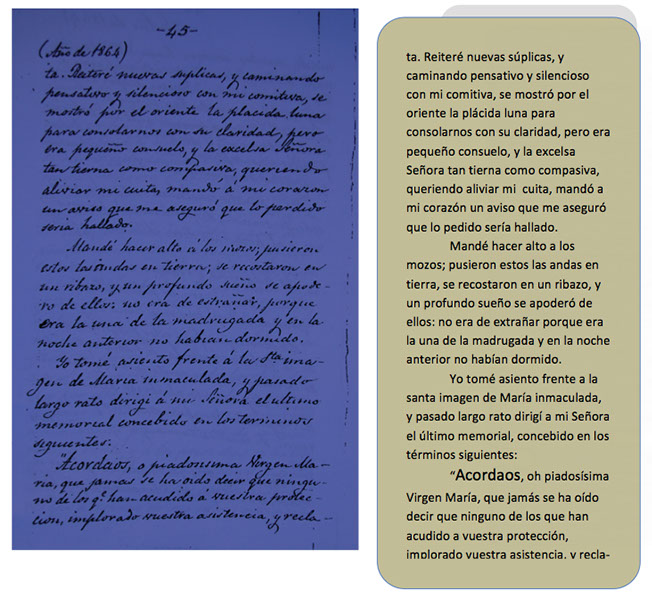 -45-
(Año de 1864)
ta. Reiteré nuevas súplicas, y caminando
pensativo y silencioso con mi comitiva, se
mostró por el oriente la placida luna
para consolarnos con su claridad, pero
era pequeño consuelo, y la excelsa Señora
tan tierna como compasiva, queriendo
aliviar mi cuita, mandó á mi corazon
un aviso que me aseguró que lo perdido
seria hallado.
Mandé hacer alto á los mozos; pusieron
estos las andas en tierra; se recostaron en
un ribazo, y un profundo sueño se apode-
ro de ellos: no era de estrañar, porque
era la una de la madrugada y en la
noche anterior no habian dormido.
Yo tomé asiento frente á la Sta. ima-
gen de Maria inmaculada, y pasado
largo rato dirigí á mi Señora el ultimo
memorial concebido en los terminos
siguientes:
"Acordaos, o piadosisima Virgen Ma-
ria, que jamas se ha oido decir que ningu-
no de los q.e han acudido á vuestra protec-
cion, implorado vuestra asistencia, y recla-
ta. Reiteré nuevas súplicas, y
caminando pensativo y silencioso
con mi comitiva, se mostró por el
oriente la plácida luna para
consolarnos con su claridad, pero era
pequeño consuelo, y la excelsa
Señora tan tierna como compasiva,
queriendo aliviar mi cuita, mandó a
mi corazón un aviso que me aseguró
que lo pedido sería hallado.
Mandé hacer alto a los
mozos; pusieron estos las andas en
tierra, se recostaron en un ribazo, y
un profundo sueño se apoderó de
ellos: no era de extrañar porque era
la una de la madrugada y en la noche
anterior no habían dormido.
Yo tomé asiento frente a la
santa imagen de María inmaculada,
y pasado largo rato dirigí a mi Señora
el último memorial, concebido en los
términos siguientes:
"Acordaos, oh piadosísima
Virgen María, que jamás se ha oído
decir que ninguno de los que han
acudido a vuestra protección,
implorado vuestra asistencia, y recla-